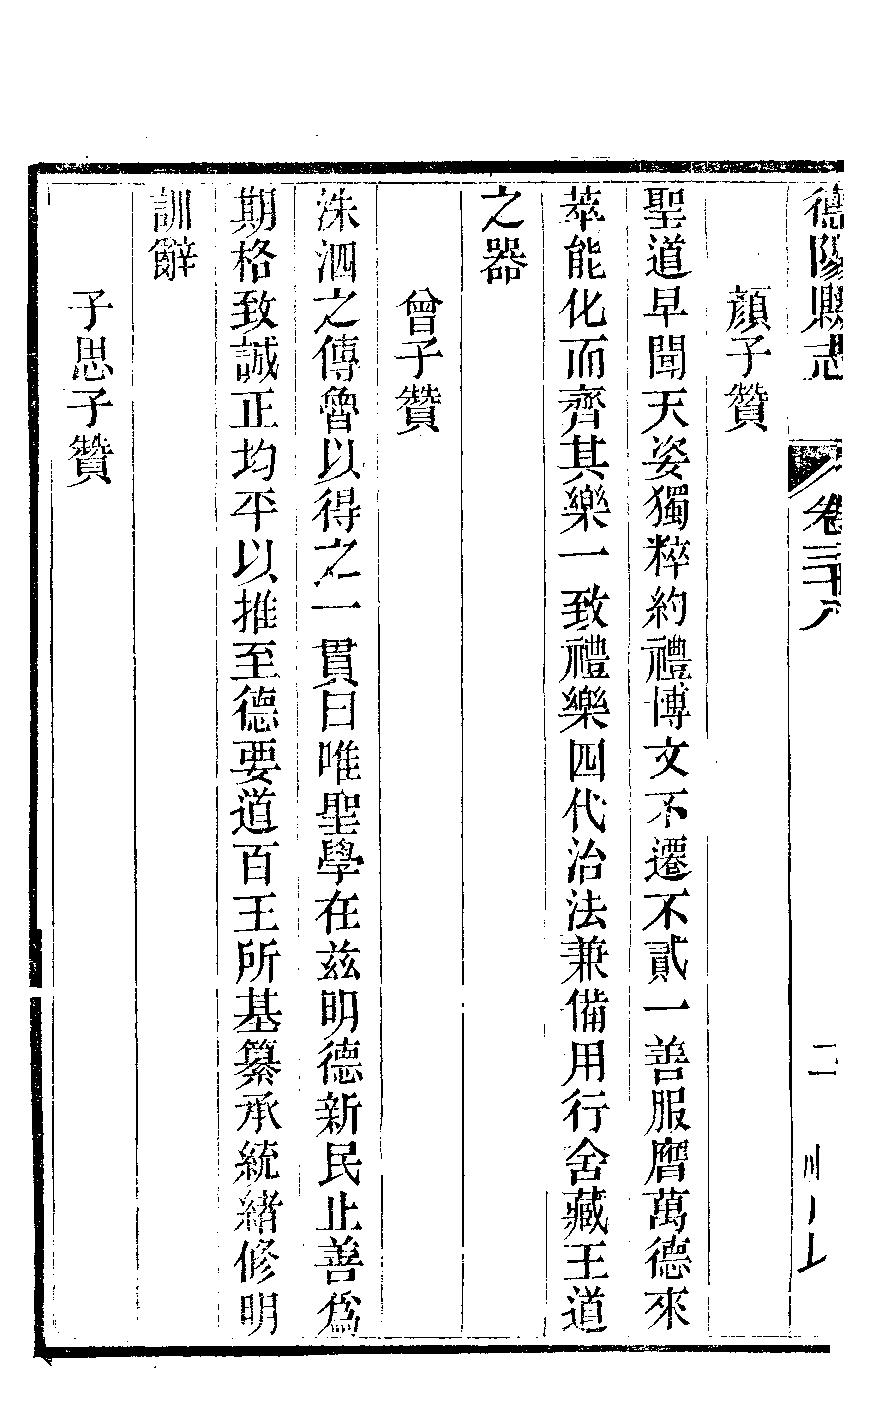 德陽縣志
卷三十八
二
顏子贊
聖道早聞天姿獨粹約禮博文不遷不貳一善服膺萬德來
萃能化而齊其樂一致禮樂四代治法兼備用行舍藏王道
之器
曾子贊
洙泗之傳魯以得之一貫曰唯聖學在兹明德新民止善爲
期格致誠正均平以推至德要道百王所基纂承統緒修明
訓辭
子思子贊